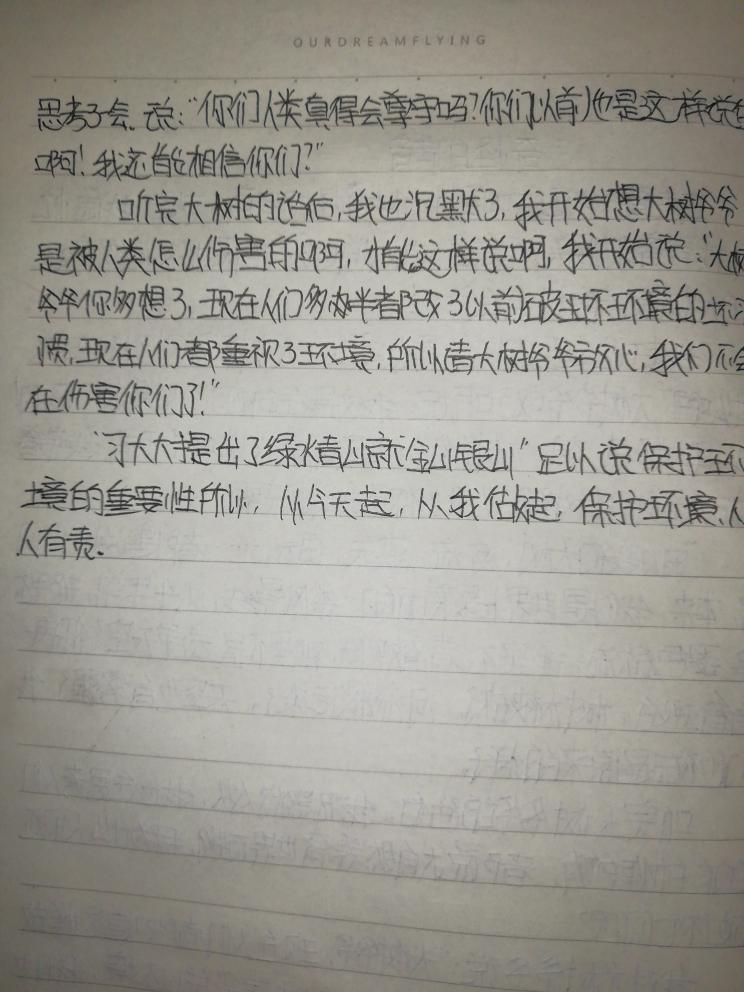 OURDREAMFLYING
思考了会,说:“你们人类真得会尊守吗?你们以前也是这样说
啊!我还能相信你们?”
听完大树的话后,我也沉默了,我开始想大树爷爷
是被人类怎么伤害的啊,才能这样说啊,我开始说:“大树
爷爷你多想了,现在人们多半者都改了以前破坏环境的坏
惯,现在人们都重视了环境,所以请大树爷爷放心,我们不会
在伤害你们了!”
“习大大提出了绿水青山就金山银山”足以说保护环
境的重要性所以,从今天起,从我做起,保护环境,人
人有责.